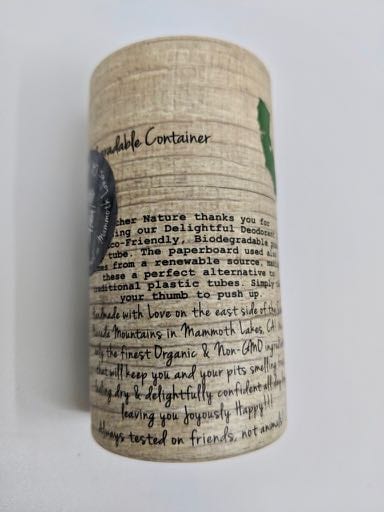 Container
Mammoth Lakes
Nature thanks you for
our Delightful Deodorant
co-Friendly, Biodegradable
tube. The paperboard used
from a renewable source,
these a perfect alternative to
plastic tubes. Simply
your thumb to push up.
with Love on the east side of the
Mountains in Mammoth Lakes, CA.
only the finest Organic & Non-GMO
that will keep you and your pits smelling
dry & delightfully confident all
leaving you Joyously Happy!!!
Always tested on friends, not